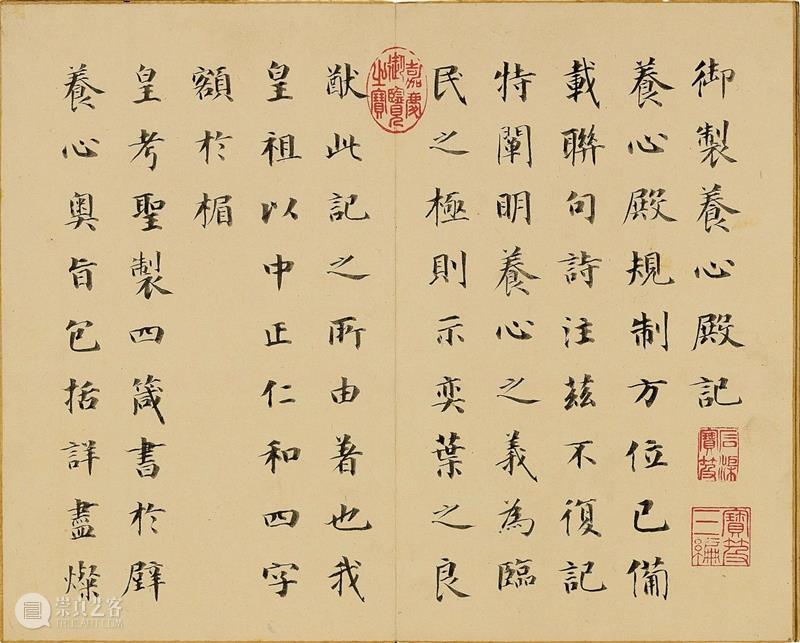 御製養心殿記
石渠寶笈
寶笈三編
養心殿規制方位已備
載聯句詩注茲不復記
特闡明養心之義為臨
民之極則示奕葉之良
嘉慶御覽之寶
猷此記之所由著也我
皇祖以中正仁和四字
額於楣
皇考聖製四箴書於壁
養心奧旨包括詳盡燦
崇真艺客